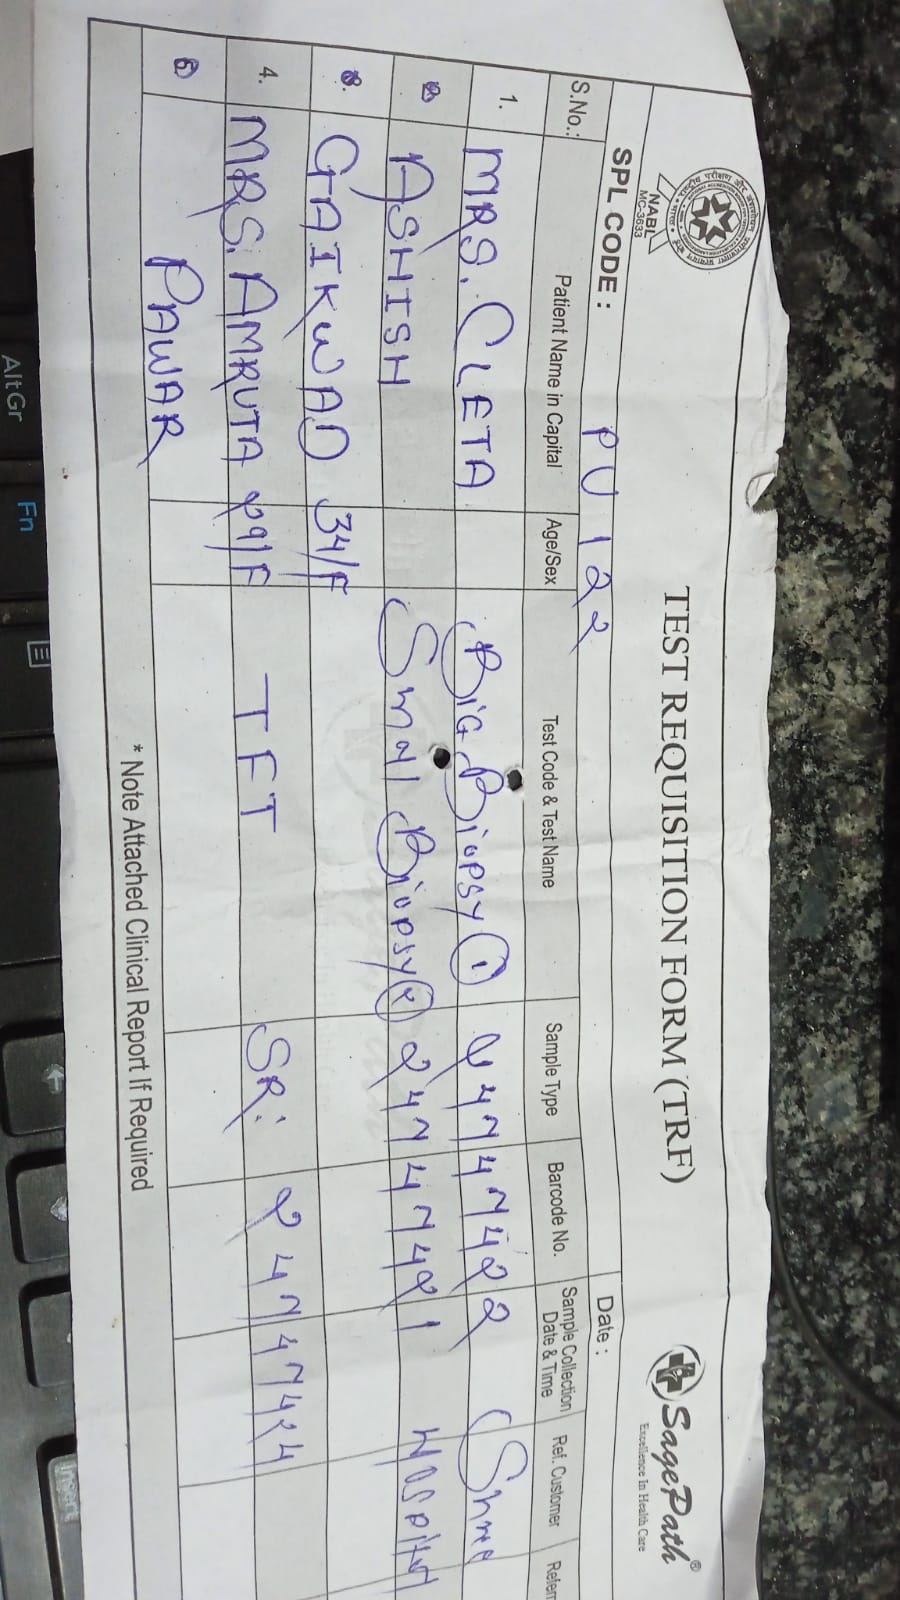 राष्ट्रीय परीक्षण और
NABL
MC-3633
TEST REQUISITION FORM (TRF)
SagePath®
Excellence In Health Care
SPL CODE : PU 122
Date :
S.No.: Patient Name in Capital Age/Sex Test Code & Test Name Sample Type Barcode No. Sample Collection Date & Time Ref. Customer Referr
1. MRS. CLETA BiG Biopsy 1 24747422 Shree
2 ASHISH Smal Biopsy 24747421 Hospital
3. GAIKWAD 34/F
4. MRS. AMRUTA 29/F TFT SR. 24747424
5 PAWAR
* Note Attached Clinical Report If Required
AltGr
Fn
Insert